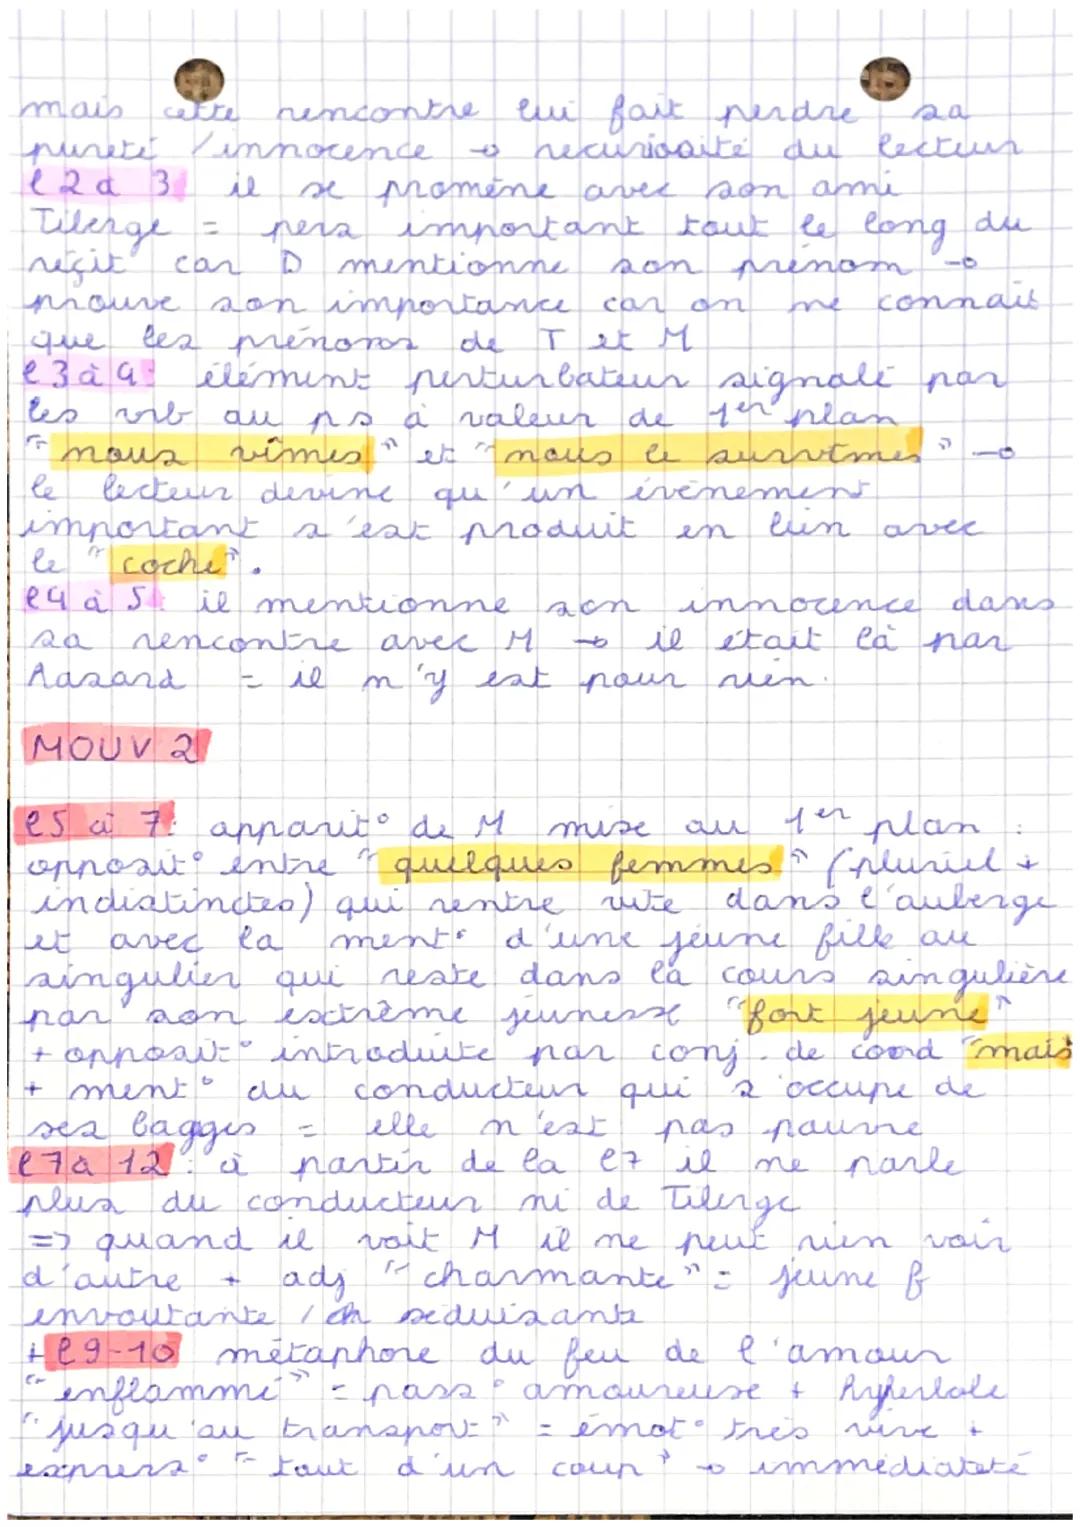 mais cette rencontre lui fait perdre sa
pureté / innocence → recuriosité du lecteur
l2 à 3 il se promène avec son ami
Tiberge = pers important tout le long du
réçit car D mentionne son prénom →
prouve son importance car on ne connait
que les prénoms de T et M
l3 à 4: élément perturbateur signalé par
les vrb au ps à valeur de 1er plan
"nous vîmes" et "nous le suivîmes" →
le lecteur devine qu'un évènement
important s'est produit en lien avec
le "coche".
l4 à 5: il mentionne son innocence dans
sa rencontre avec M → il était là par
Hasard = il n'y est pour rien.
MOUV 2
l5 à 7: apparit° de M mise au 1er plan :
opposit° entre "quelques femmes" (pluriel +
indistinctes) qui rentre vite dans l'auberge
et avec la ment° d'une jeune fille au
singulier qui reste dans la cours singulière
par son extrême jeunesse "fort jeune"
+ opposit° introduite par conj. de coord "mais
+ ment° du conducteur qui s'occupe de
ses bagges = elle n'est pas pauvre
l7 à 12: à partir de la l7 il ne parle
plus du conducteur ni de Tiberge
=> quand il voit M il ne peut rien voir
d'autre + adj "charmante" = jeune f
envoutante / séduisante
+ l9-10 métaphore du feu de l'amour
"enflammé" = pass° amoureuse + hyperbole
"jusqu'au transport" = émot° très vive +
express° "tout d'un coup" → immédiateté